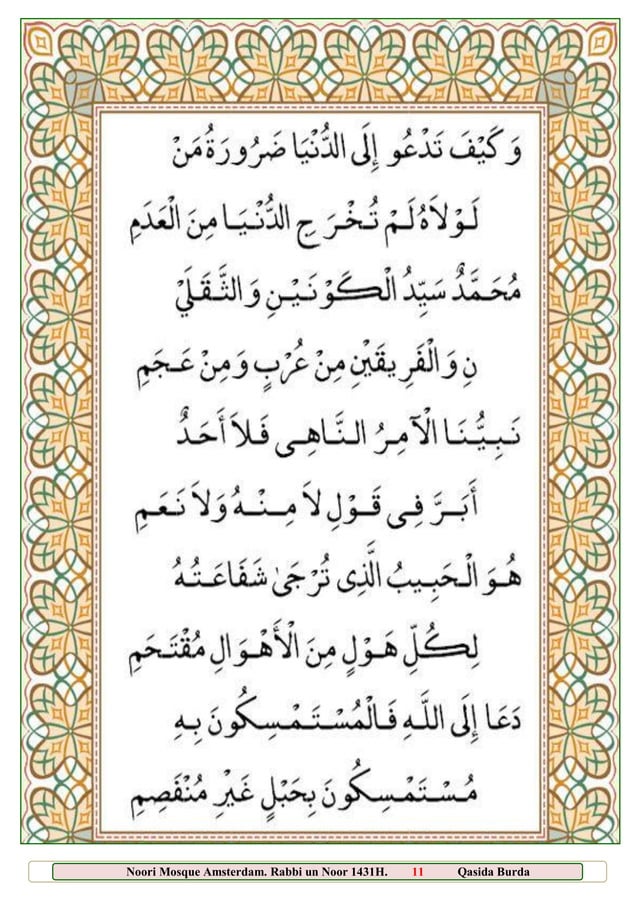 وَ كَيْفَ تَدْعُو إِلَى الدُّنْيَا ضَرُورَةُ مَنْ
لَوْلَاهُ لَمْ تُخْرَجِ الدُّنْيَا مِنَ الْعَدَمِ
مُحَمَّدٌ سَيِّدُ الْكَوْنَيْنِ وَ الثَّقَلَيْ
نِ وَ الْفَرِيقَيْنِ مِنْ عُرْبٍ وَ مِنْ عَجَمِ
نَبِيُّنَا الْآمِرُ النَّاهِى فَلَا أَحَدٌ
أَبَرَّ فِى قَوْلِ لَا مِنْهُ وَلَا نَعَمِ
هُوَ الْحَبِيبُ الَّذِى تُرْجَىٰ شَفَاعَتُهُ
لِكُلِّ هَوْلٍ مِنَ الْأَهْوَالِ مُقْتَحَمِ
دَعَا إِلَى اللَّهِ فَالْمُسْتَمْسِكُونَ بِهِ
مُسْتَمْسِكُونَ بِحَبْلٍ غَيْرِ مُنْفَصِمِ
Noori Mosque Amsterdam. Rabbi un Noor 1431H. 11 Qasida Burda